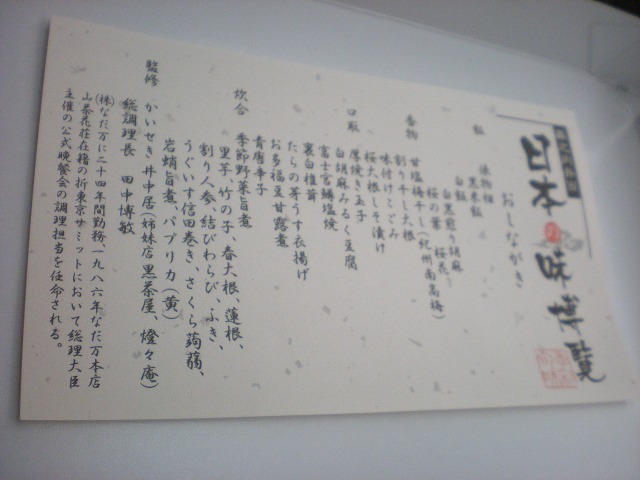 日本の味博覧
おしながき
飯
俵物相
黒米飯
白飯
白黒煎り胡麻
桜の葉 桜花
香物
甘塩梅干し(紀州南高梅)
割り干し大根
味付けこごみ
桜大根しそ漬け
口取
厚焼き玉子
白胡麻みるく豆腐
富士宮鱒塩焼
裏白椎茸
たらの芽うす衣揚げ
お多福豆甘露煮
青唐辛子
炊合
季節野菜旨煮
里芋、竹の子、春大根、蓮根、
割り人参、結びわらび、ふき、
うぐいす信田巻き、さくら蒟蒻、
岩蛸旨煮、パプリカ(黄)
監修 かいせき井中居(姉妹店 黒茶屋、燈々庵)
総調理長 田中博敏
(株)なだ万に二十四年間勤務、一九八六年なだ万本店
山茶花荘在籍の折東京サミットにおいて総理大臣
主催の公式晩餐会の調理担当を任命される。